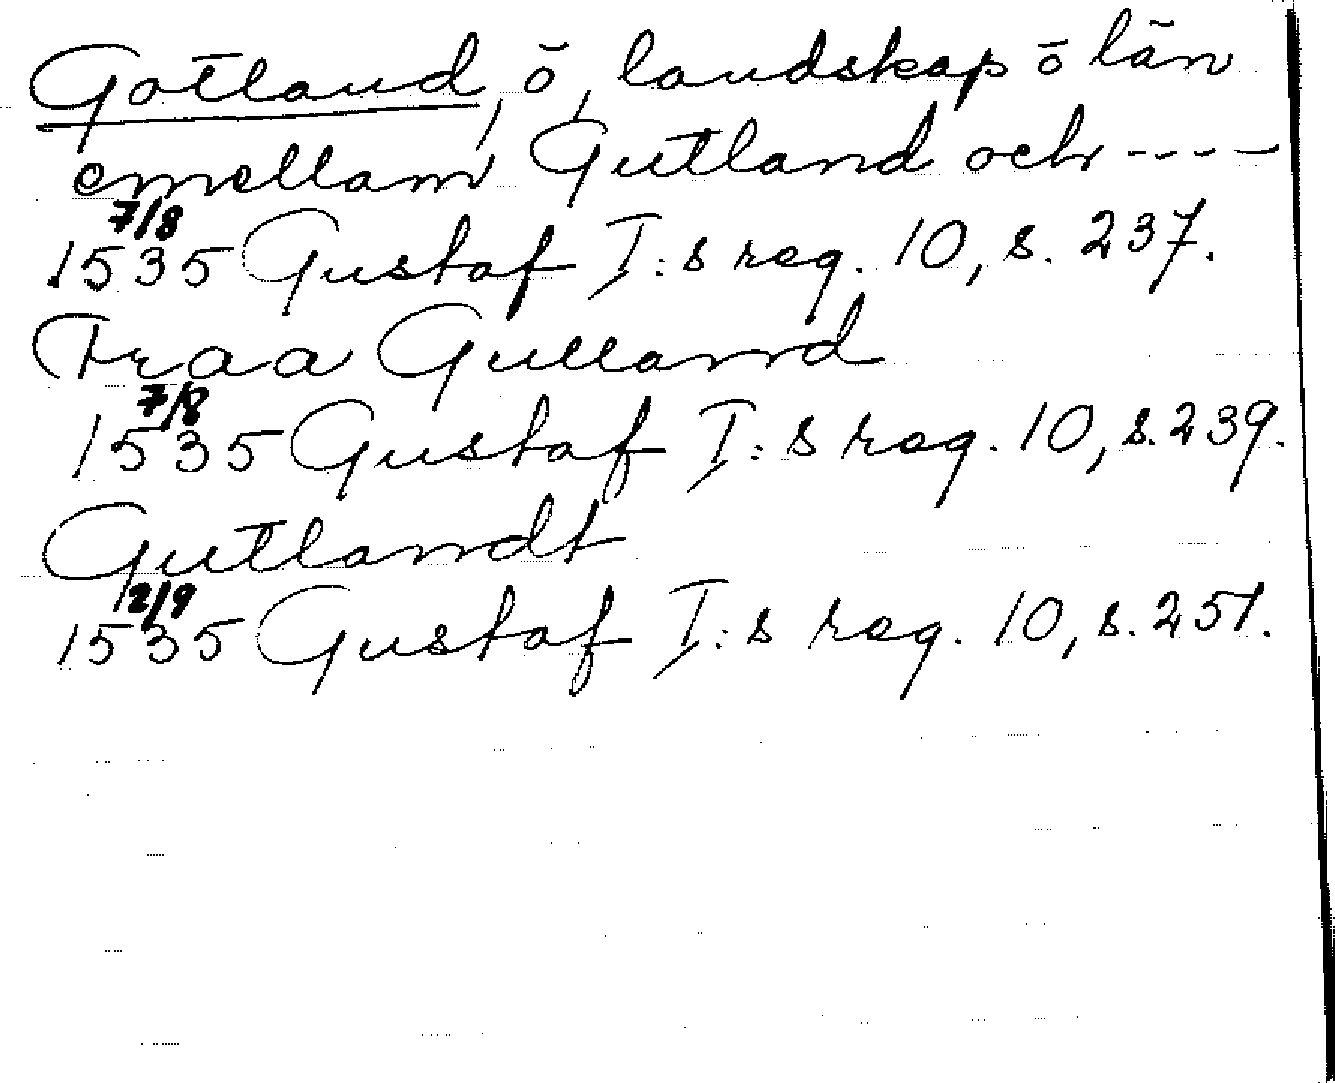 Gotland, ö, landskap ö län
emellam Gutland och ----
7/8
1535 Gustaf I:s reg. 10, s. 237.
Fraa Gulland
7/8
1535 Gustaf I:s reg. 10, s. 239.
Gutlandt
12/9
1535 Gustaf I:s reg. 10, s. 251.